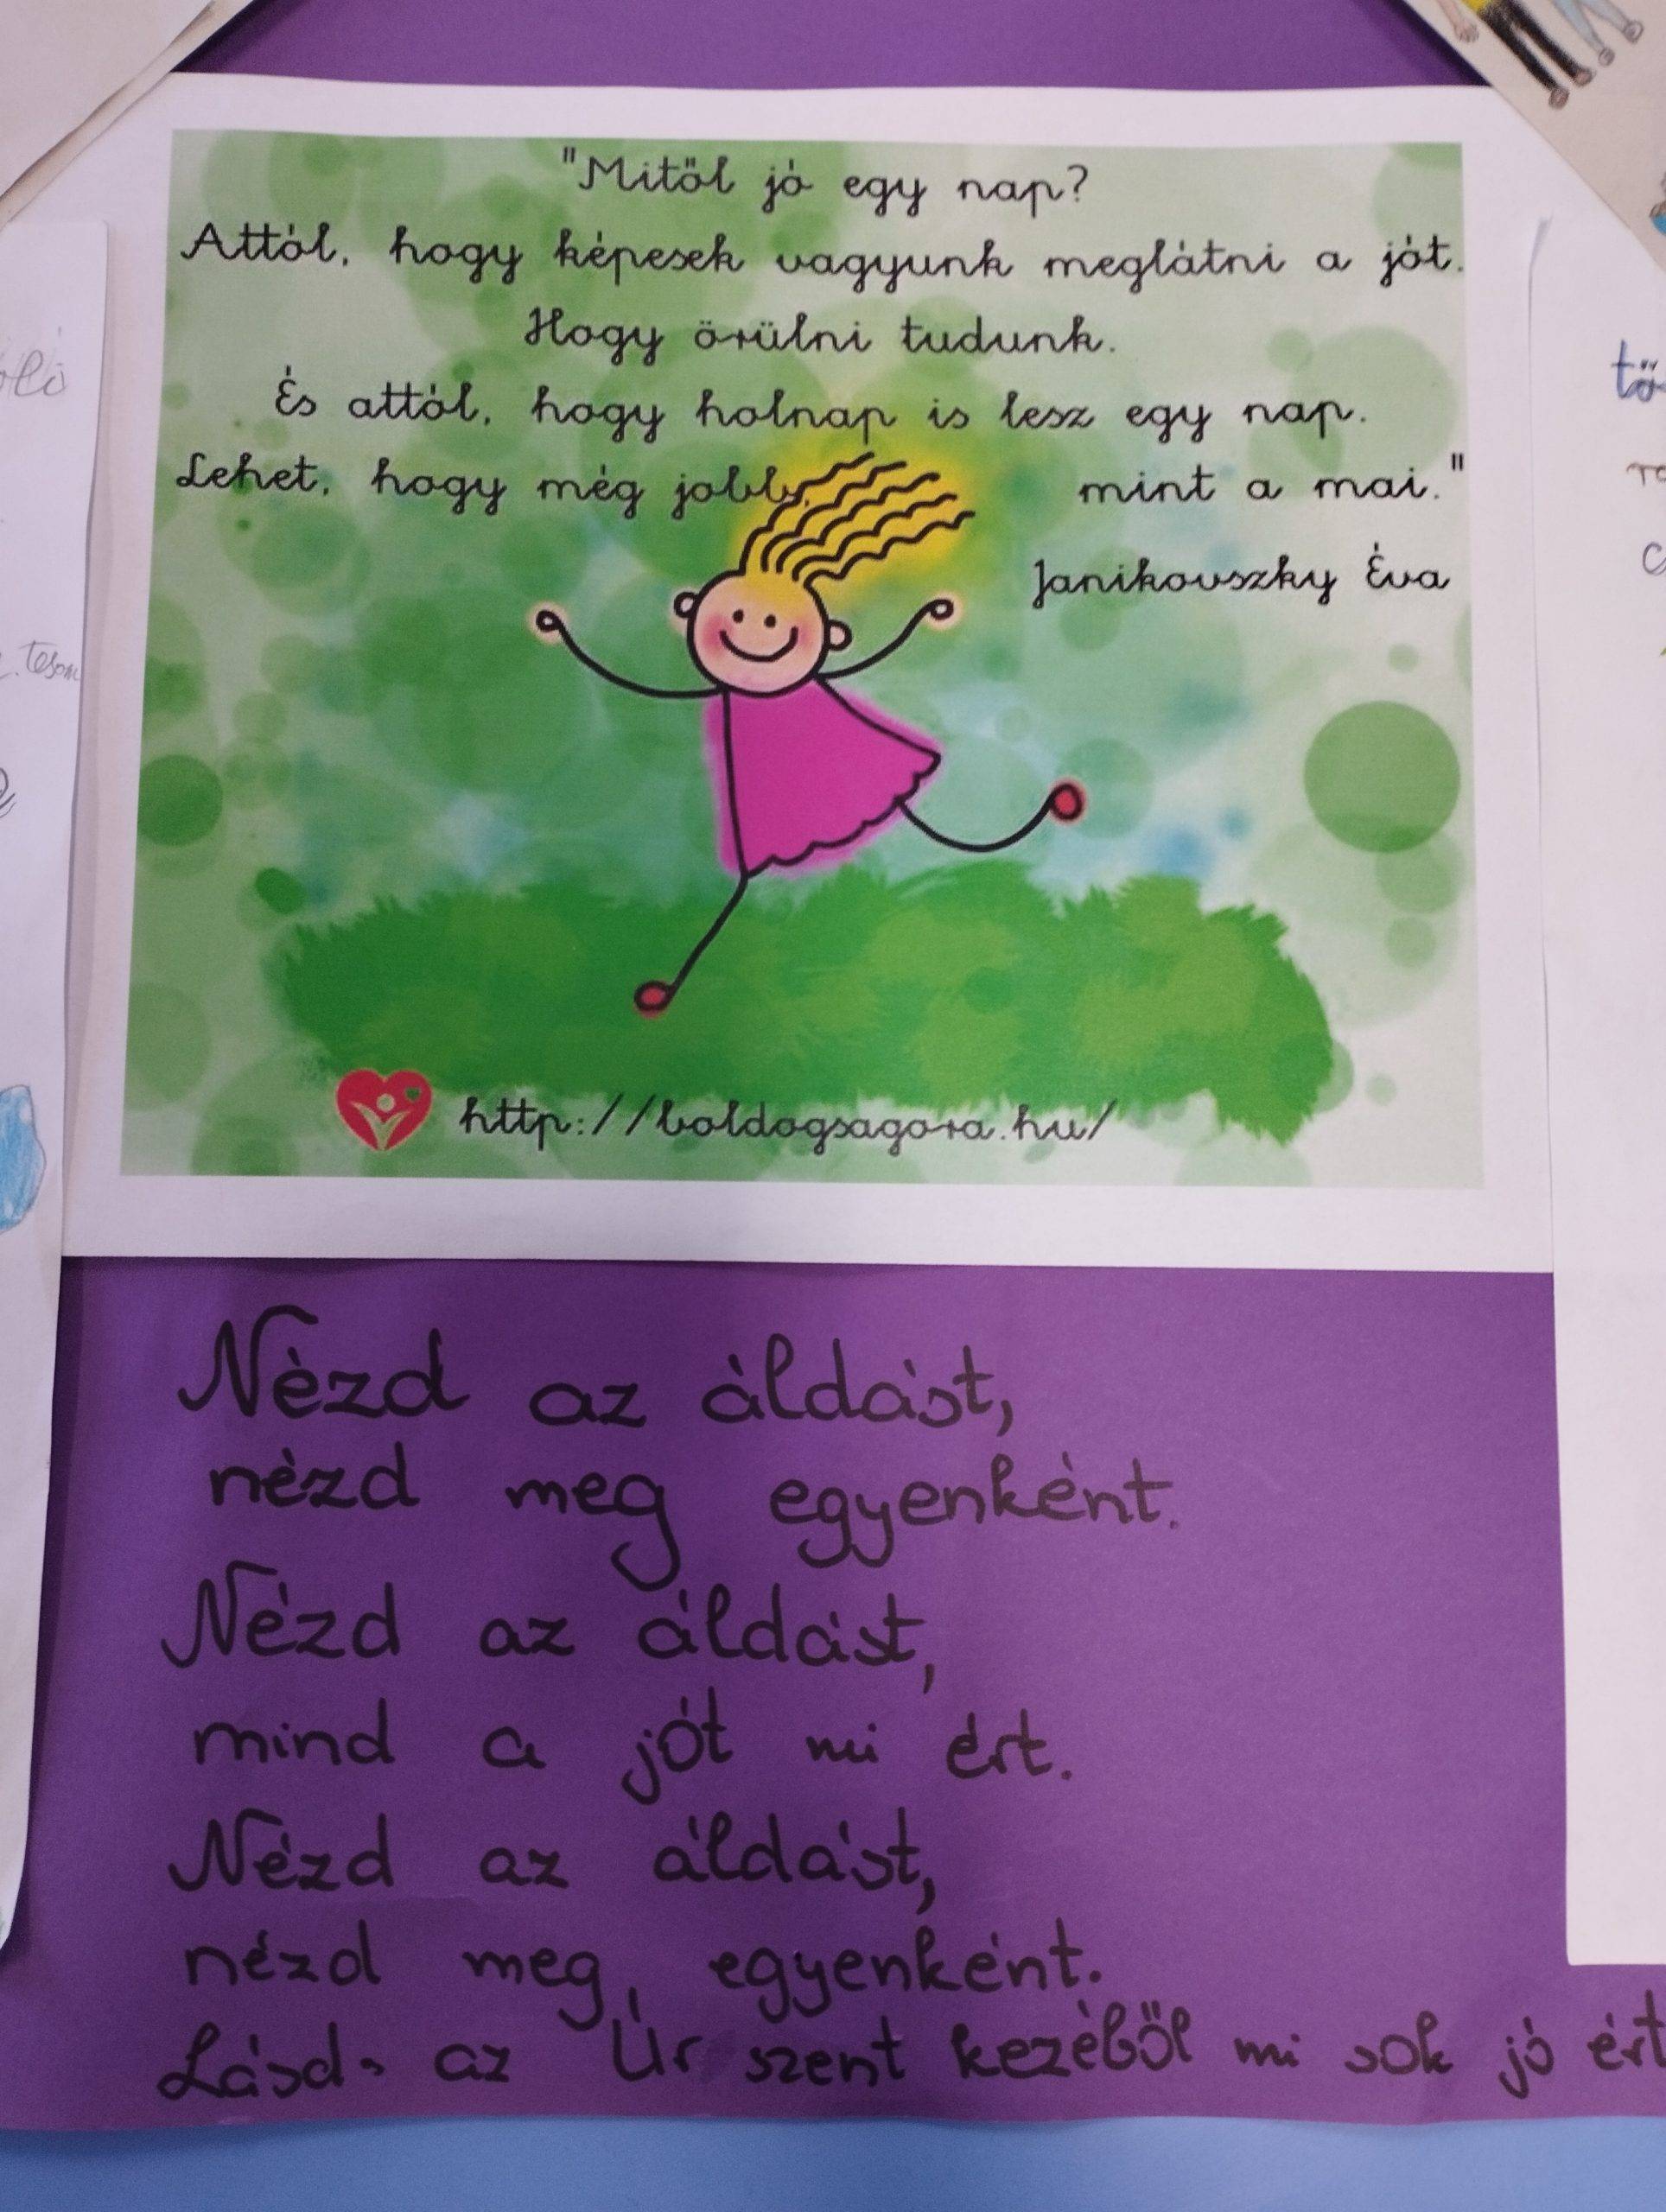 "Mitől jó egy nap?
Attól, hogy képesek vagyunk meglátni a jót.
Hogy örülni tudunk.
És attól, hogy holnap is lesz egy nap.
Lehet, hogy még jobb, mint a mai."
Janikovszky Éva
http://boldogsagora.hu/
Nézd az áldást,
nézd meg egyenként.
Nézd az áldást,
mind a jót mi ért.
Nézd az áldást,
nézd meg egyenként.
Lásd az Úr szent kezéből mi sok jó ért